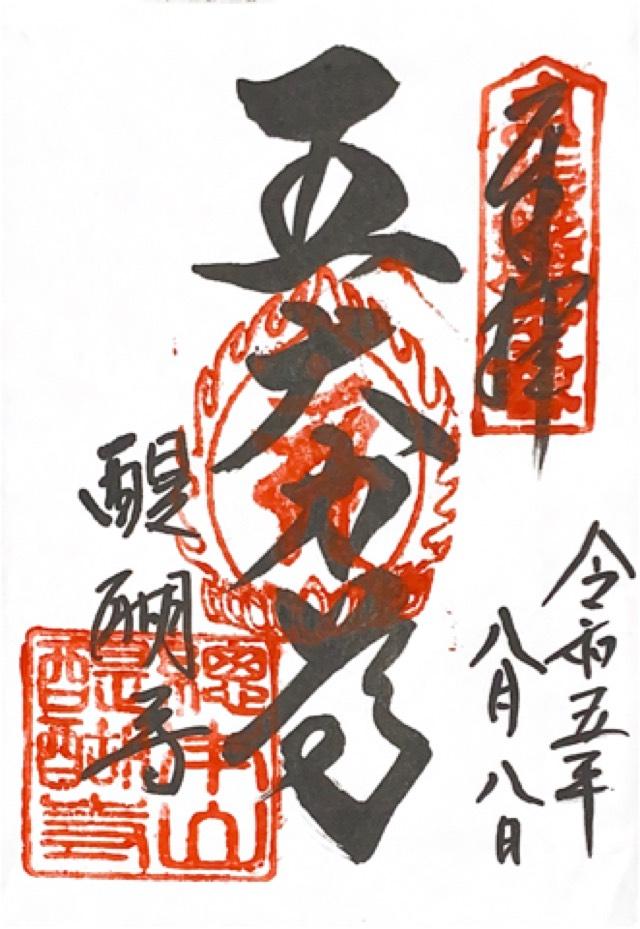 奉拝
令和五年
八月八日
五大力尊
醍醐寺
總本山
醍醐寺